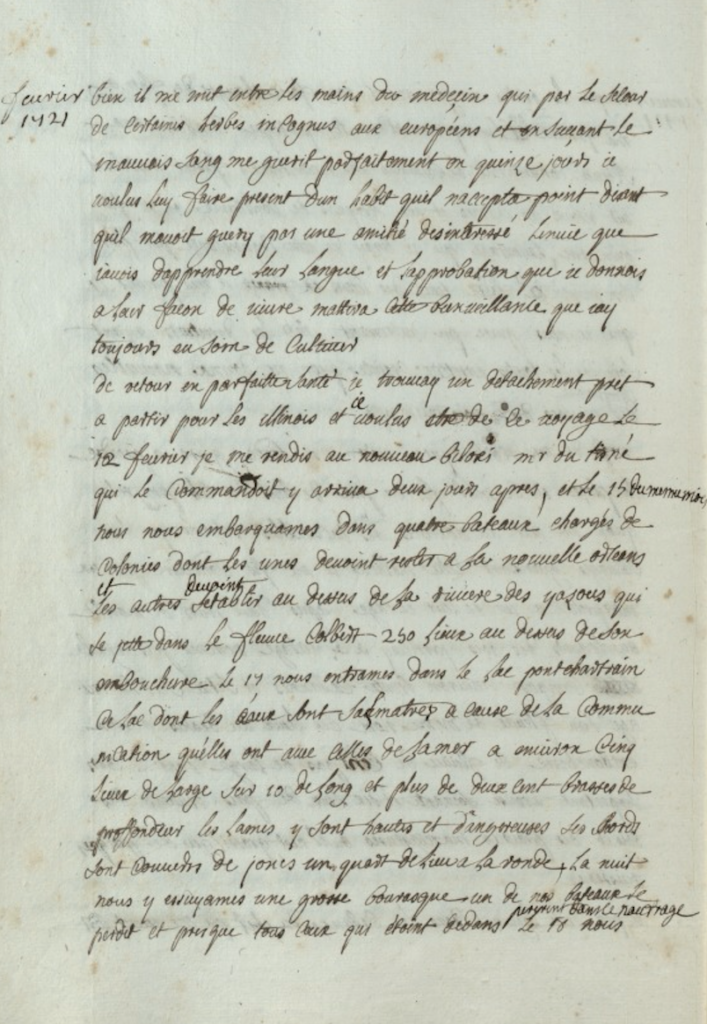 fevrier
1721
bien il me mit entre les mains du medecin qui par le secour
de certaines herbes incognus aux européens et en sucant le
mauvais sang me guerit parfaitement en quinze jours ie
voulus luy faire present d'un habit quil naccepta point disant
quil mavoit guery par une amitié desinteressé lenvie que
iavois dapprendre leur langue et lapprobation que ie donnois
a leur façon de vivre mattira cette bienveillance que iay
toujours eu soin de cultiver
de retour en parfaitte santé ie trouvay un detachement pret
a partir pour les illinois et ie voulus etre de ce voyage le
12 fevrier je me rendis au nouveau biloxi mr du tiné
qui le commandoit y arriva deux jours apres, et le 15 du meme mois
nous nous embarquames dans quatre bateaux chargés de
colonies dont les unes devoint rester a la nouvelle orleans
et les autres devoint setablir au dessus de la riviere des yasous qui
se jette dans le fleuve Colbert 250 lieux au dessus de son
embouchure le 17 nous entrames dans le lac pontchartrain
ce lac dont les eaux sont saumatres a cause de la commu
nication quelles ont avec celles de la mer a environ cinq
lieux de large sur 10 de long et plus de deux cent brasses de
proffondeur les lames y sont hautes et dangereuses ses bords
sont couverts de joncs un quart de lieu a la ronde, la nuit
nous y essuyames une grosse bourasque un de nos bateaux se
perdit et presque tous ceux qui etoint dedans perirent dans ce naufrage le 18 nous